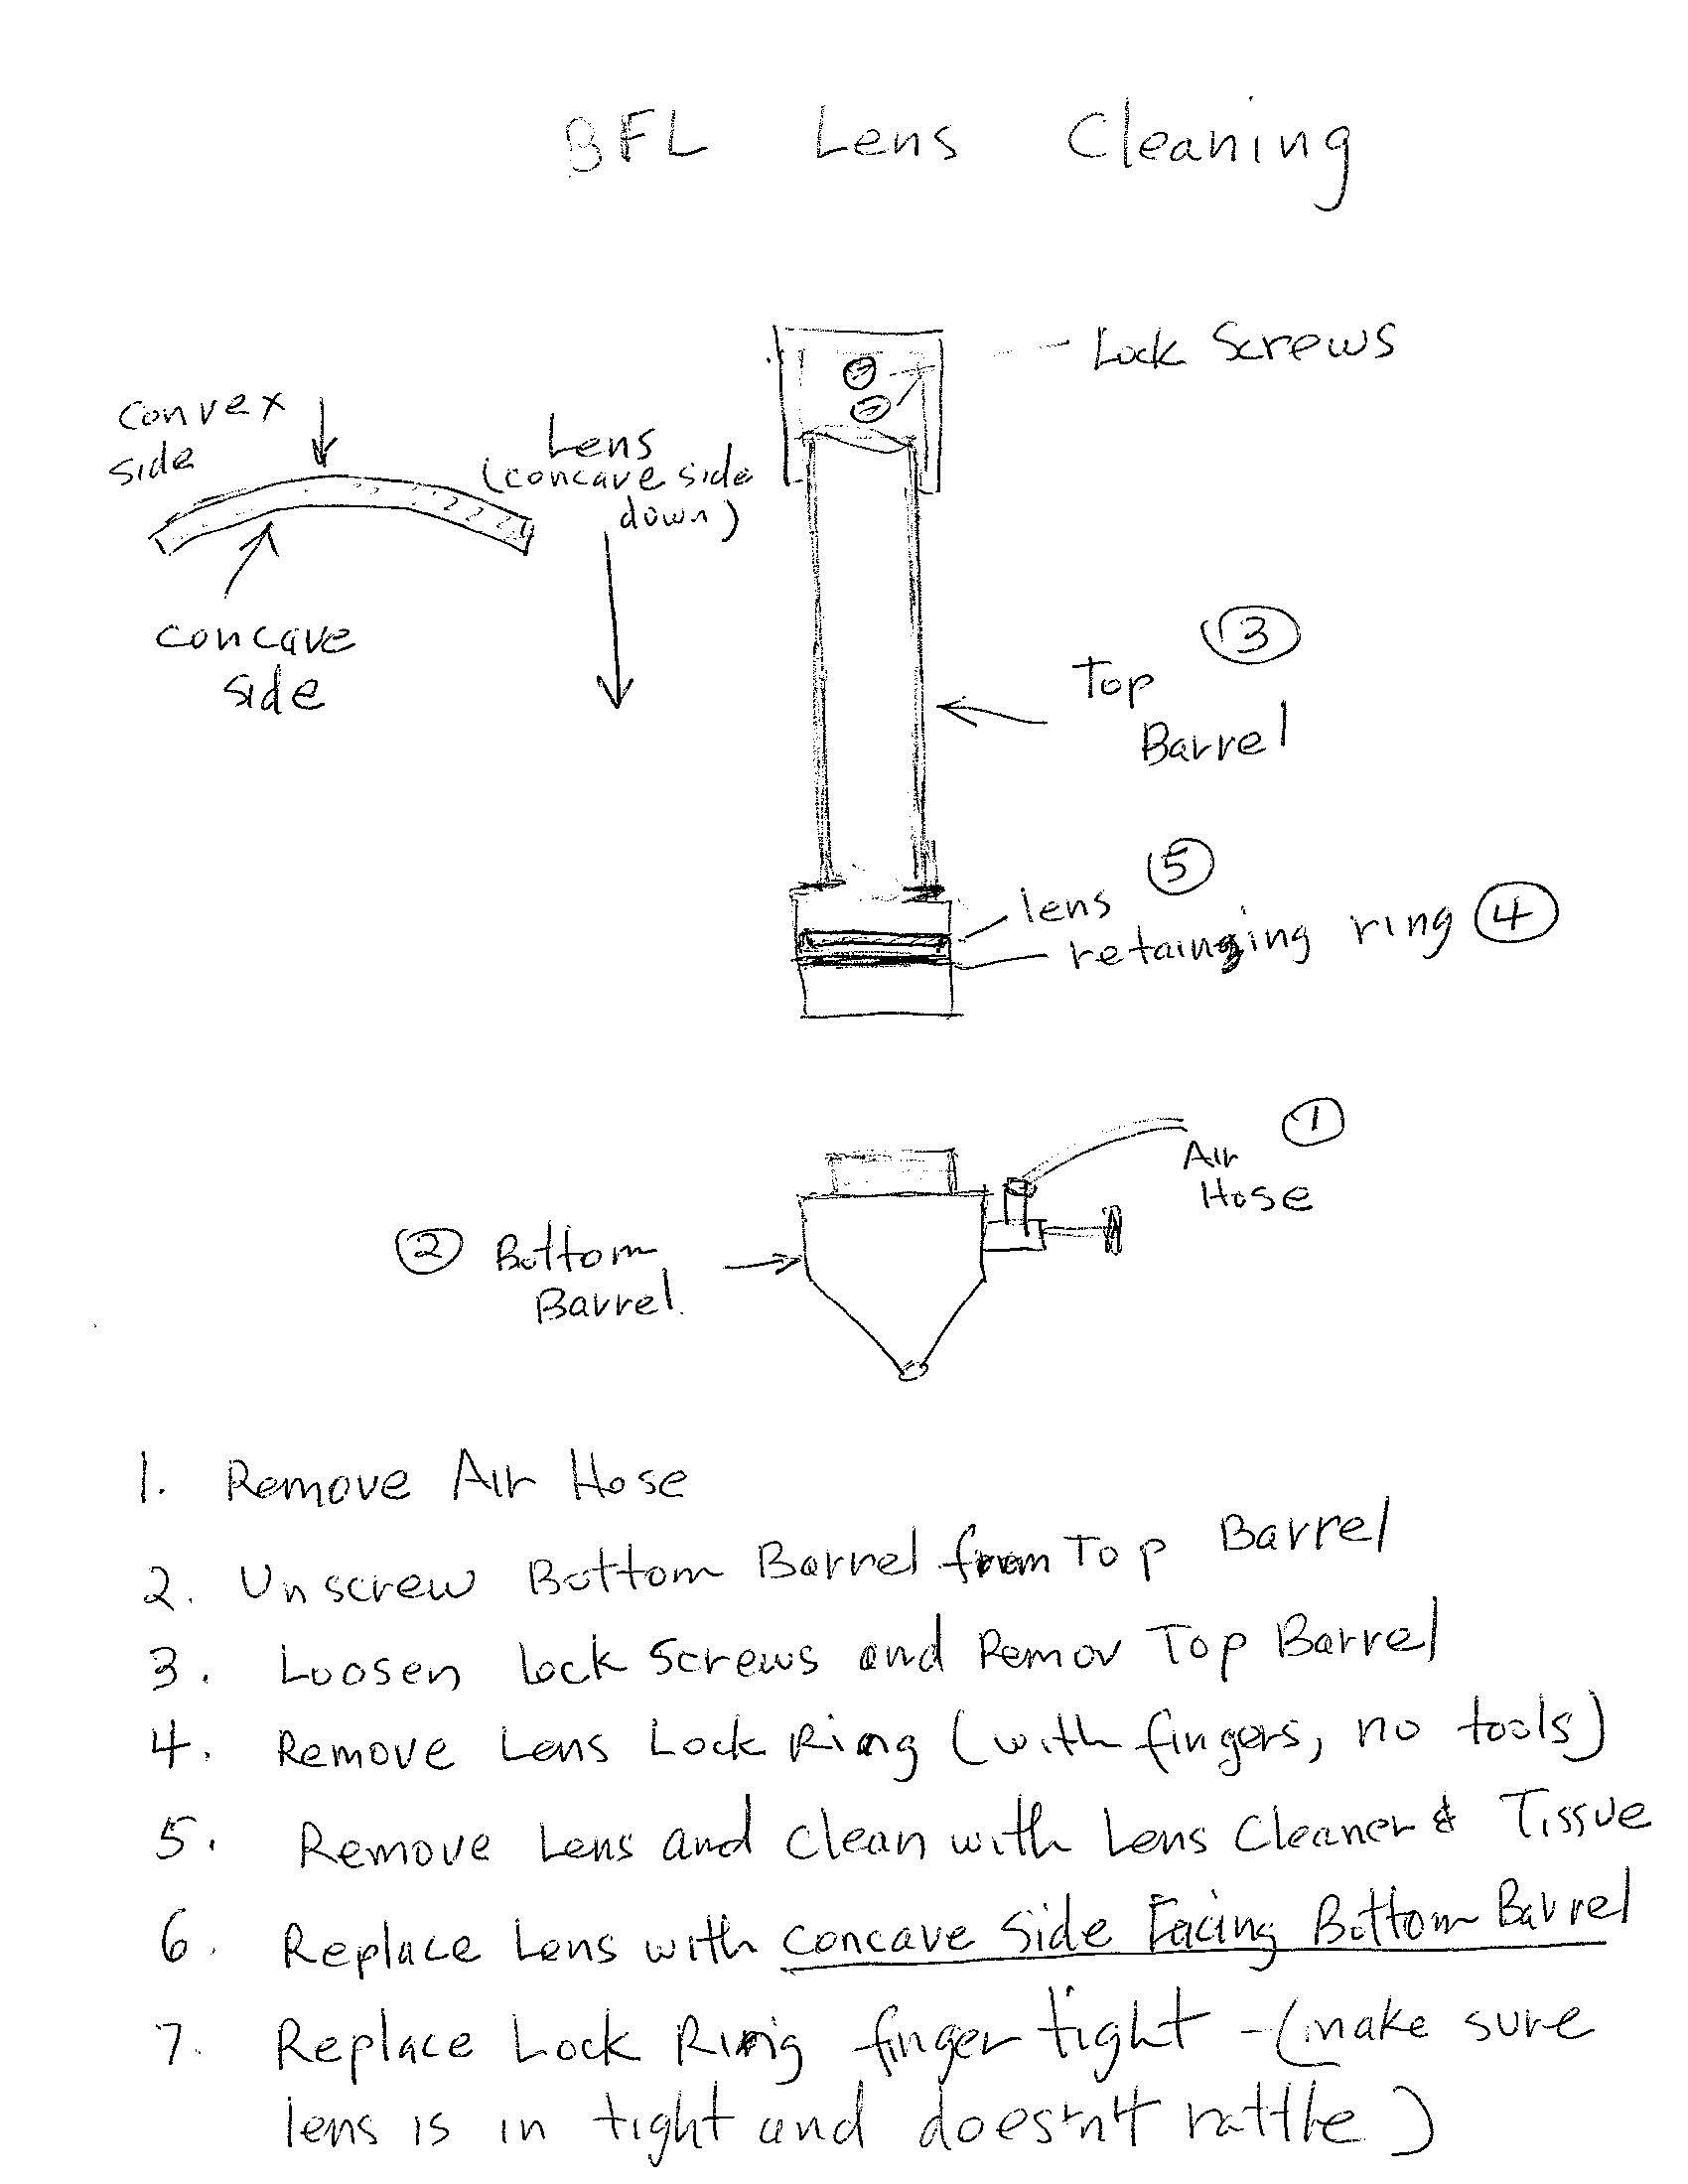 BFL Lens Cleaning
Lock Screws
convex
side
Lens
(concave side
down)
concave
side
3
Top
Barrel
5
lens
retainging ring 4
1
Air
Hose
2 Bottom
Barrel.
1. Remove Air Hose
2. Unscrew Bottom Barrel from Top Barrel
3. Loosen lock screws and Remov Top Barrel
4. Remove Lens Lock Ring (with fingers, no tools)
5. Remove Lens and clean with Lens Cleaner & Tissue
6. Replace Lens with concave Side Facing Bottom Barrel
7. Replace Lock Ring finger tight - (make sure
lens is in tight and doesn't rattle)